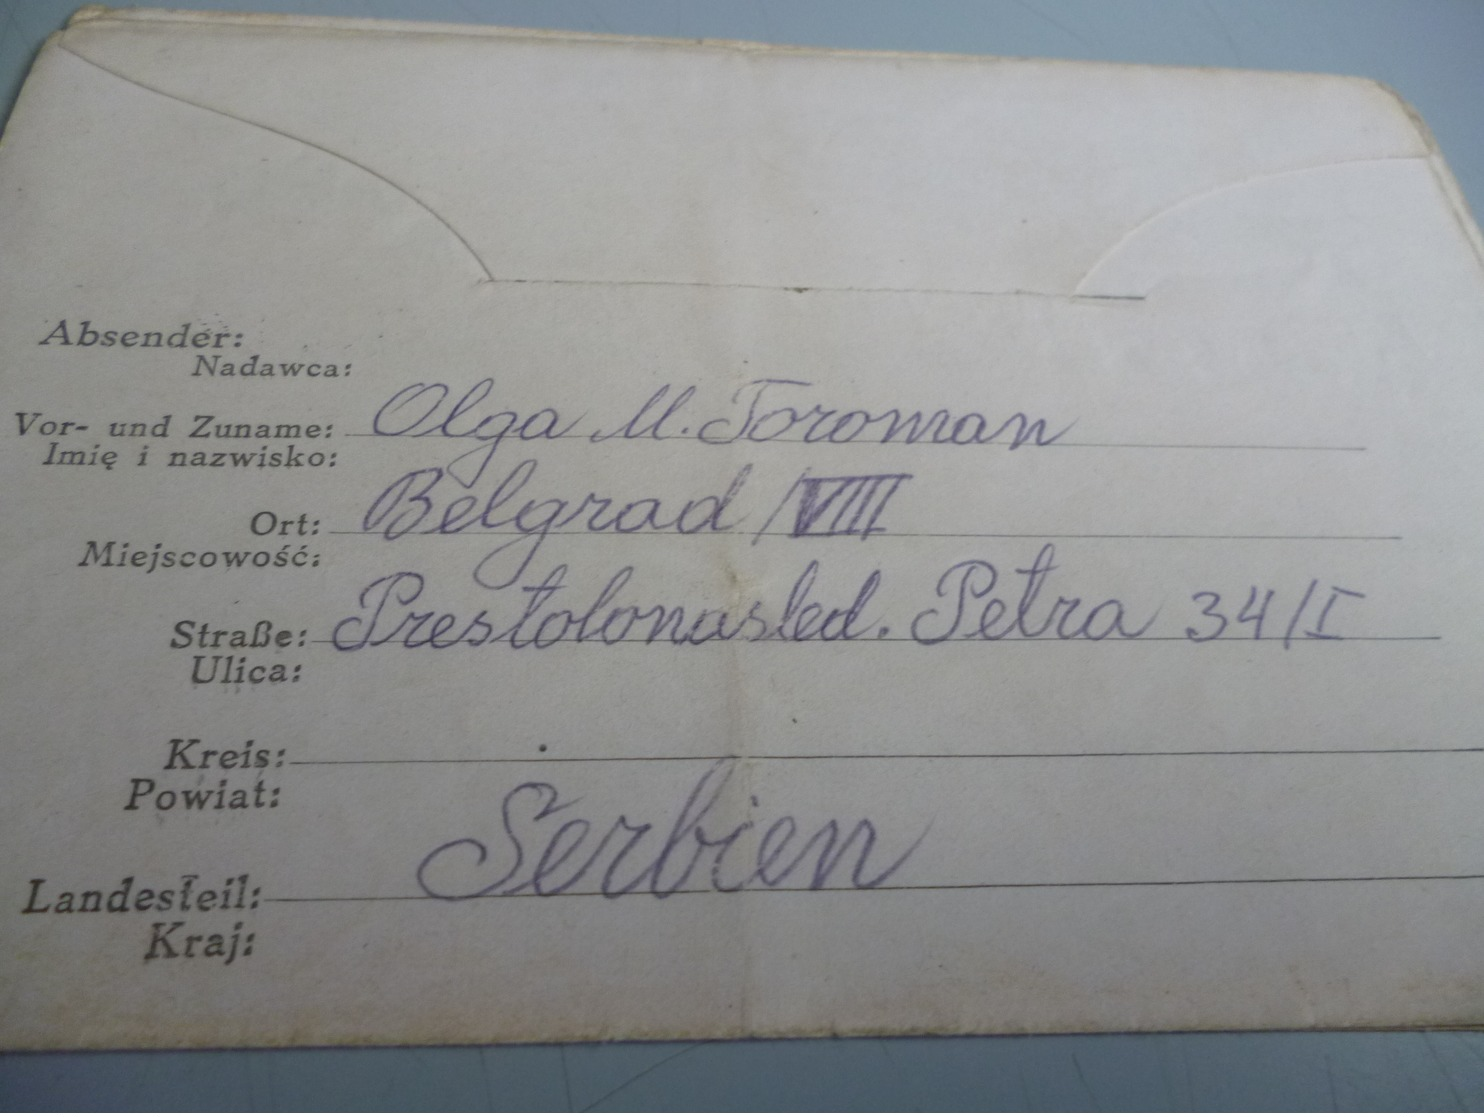 Absender:
Nadawca:
Vor- und Zuname: Olga M. Toroman
Imię i nazwisko:
Ort: Belgrad /VIII
Miejscowość:
Straße: Prestolonasled. Petra 34/I
Ulica:
Kreis:
Powiat:
Landesteil: Serbien
Kraj: